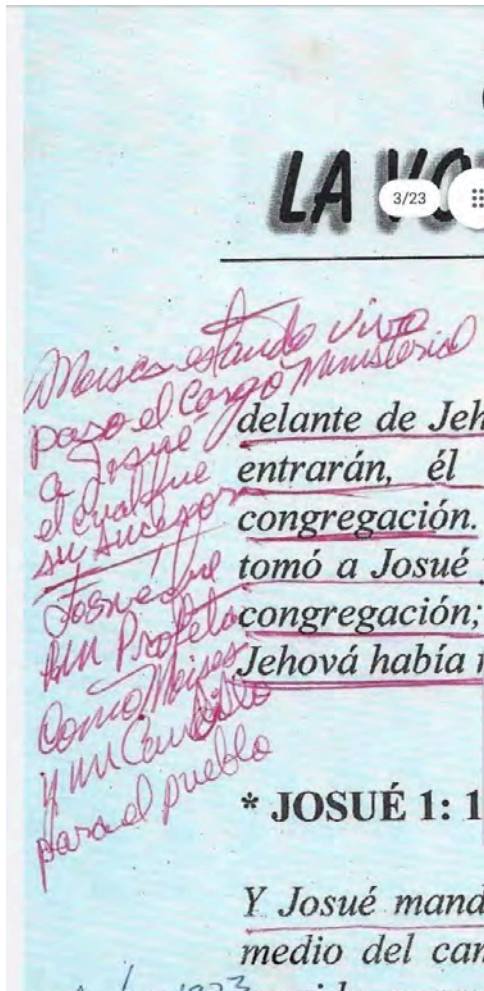 LA VO
3/23
Moises estando vivo
paso el Cargo Ministerial
a Josue
el cual fue
su sucesor
Josué fue
un Profeta
Como Moises
y un Caudillo
para el pueblo
delante de Jeh
entrarán, él
congregación.
tomó a Josué
congregación;
Jehová había
* JOSUÉ 1: 1
Y Josué mand
medio del can
1923